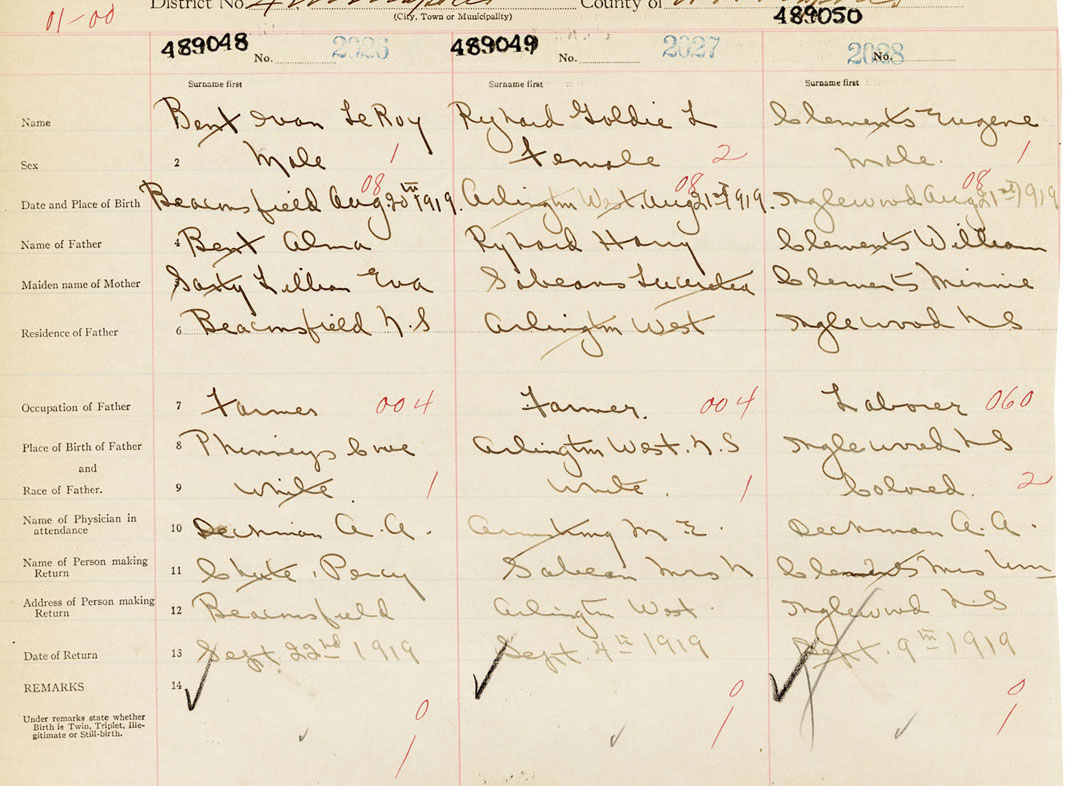 01-00 District No. County of
(City, Town or Municipality)
489048 No. 2026 489049 No. 2027 489050 No. 2028
Surname first Surname first Surname first
Name Bent Ivan LeRoy Ryhard Goldie L Clements Eugene
Sex 2 Male 1 Female 2 Male. 1
Date and Place of Birth Beaconsfield Aug 20th 1919. 08 Arlington West. Aug 21st 1919. 08 Inglewood Aug 21st 1919 08
Name of Father 4 Bent Alma Ryhard Harry Clements William
Maiden name of Mother Saxty Lillian Eva Sabeans Lucretia Clements Minnie
Residence of Father 6 Beaconsfield N.S Arlington West Inglewood N S
Occupation of Father 7 Farmer 004 Farmer. 004 Laborer 060
Place of Birth of Father 8 Phinneys Cove Arlington West. N.S Inglewood N S
and
Race of Father. 9 White. 1 White. 1 Colored. 2
Name of Physician in
attendance 10 Dechman A. A. Armstrong M E. Dechman A. A.
Name of Person making
Return 11 Chute, Percy Sabean Mrs N Clements Mrs Wm
Address of Person making
Return 12 Beaconsfield Arlington West. Inglewood N.S
Date of Return 13 Sept. 22nd 1919 Sept. 4th 1919 Sept. 9th 1919
REMARKS 14
Under remarks state whether
Birth is Twin, Triplet, Ille-
gitimate or Still-birth.
0 0 0
1 1 1